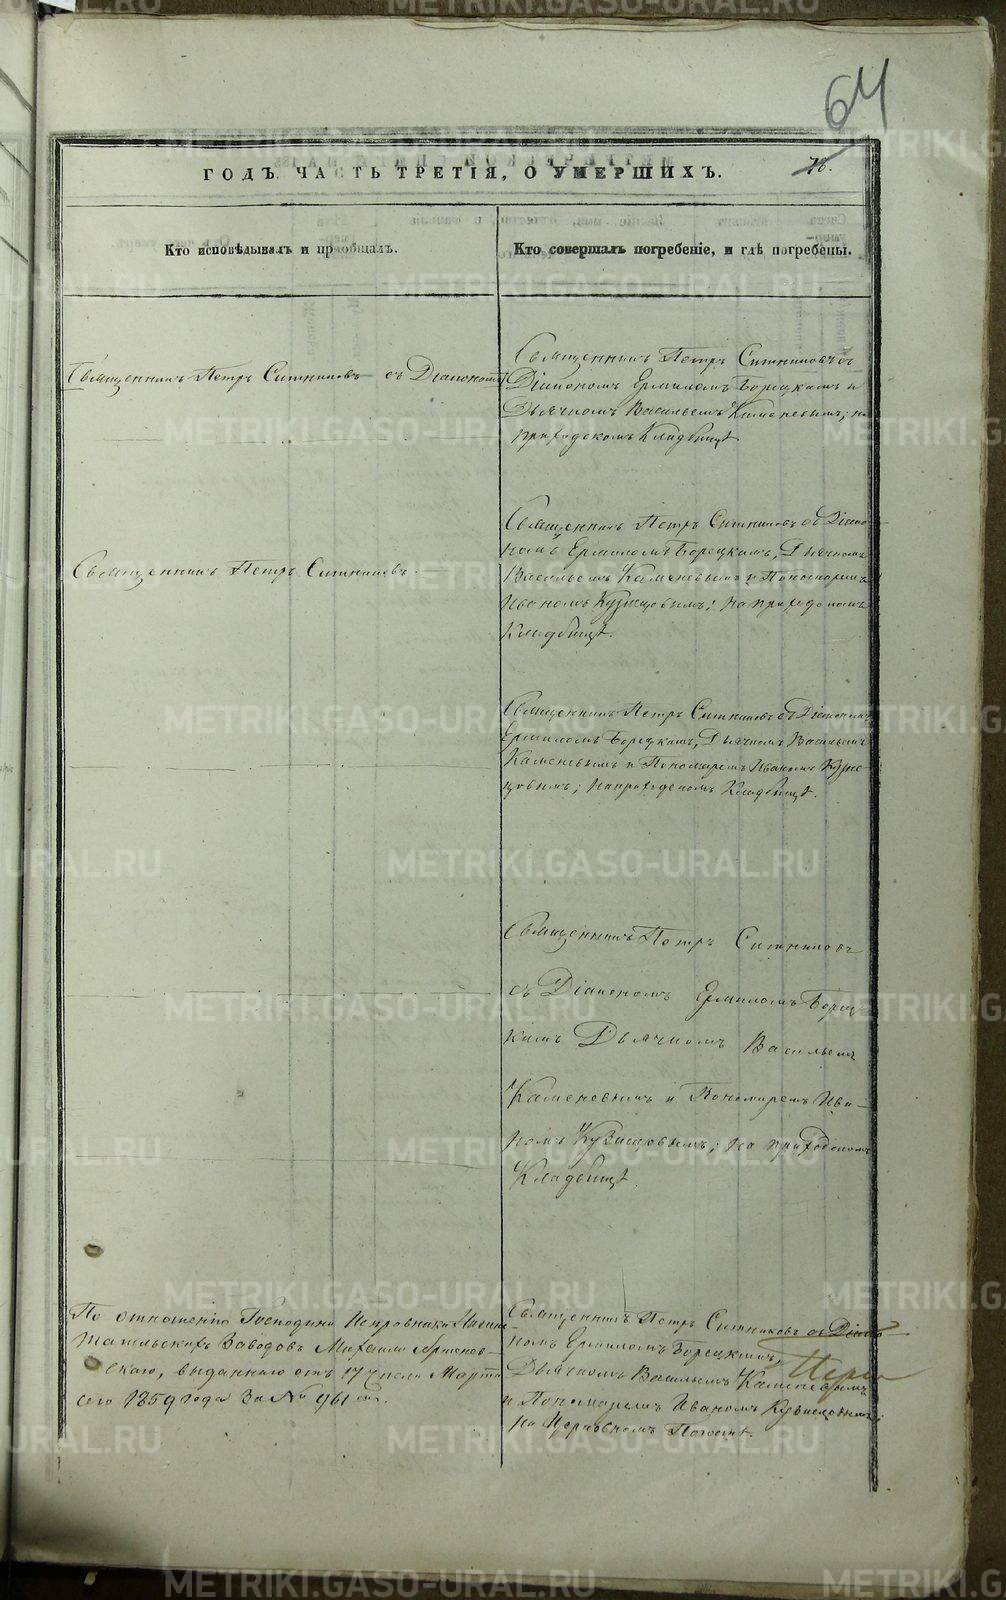 64
76.
ГОДЪ. ЧАСТЬ ТРЕТІЯ, О УМЕРШИХЪ.
Кто исповѣдывалъ и пріобщалъ.
Кто совершалъ погребеніе, и гдѣ погребены.
Священникъ Петръ Ситниковъ съ Діакономъ
Священникъ Петръ Ситниковъ съ
Діакономъ Ермиломъ Борецкимъ и
Дьячкомъ Васильемъ Каменевымъ; на
приходскомъ Кладбищѣ.
Священникъ Петръ Ситниковъ
Священникъ Петръ Ситниковъ съ Діако-
номъ Ермиломъ Борецкимъ, Дьячкомъ
Васильемъ Каменевымъ и Пономаремъ
Иваномъ Кузнецовымъ; на приходскомъ
Кладбищѣ.
Священникъ Петръ Ситниковъ съ Діакономъ
Ермиломъ Борецкимъ, Дьячкомъ Васильемъ
Каменевымъ и Пономаремъ Иваномъ Кузне-
цовымъ; на приходскомъ Кладбищѣ.
Священникъ Петръ Ситниковъ
съ Діакономъ Ермиломъ Борец-
кимъ Дьячкомъ Васильемъ
Каменевымъ и Пономаремъ Ива-
номъ Кузнецовымъ; на приходскомъ
Кладбищѣ.
По отношенію Господина Исправника Нижне-
Тагильскихъ Заводовъ Михаила
выданнаго отъ 17 числа Марта
сего 1859 года за № 961
Священникъ Петръ Ситниковъ съ Діако-
номъ Ермиломъ Борецкимъ,
Дьячкомъ Васильемъ Каменевымъ
и Пономаремъ Иваномъ Кузнецовымъ;
на Церковномъ Погостѣ.
METRIKI.GASO-URAL.RU